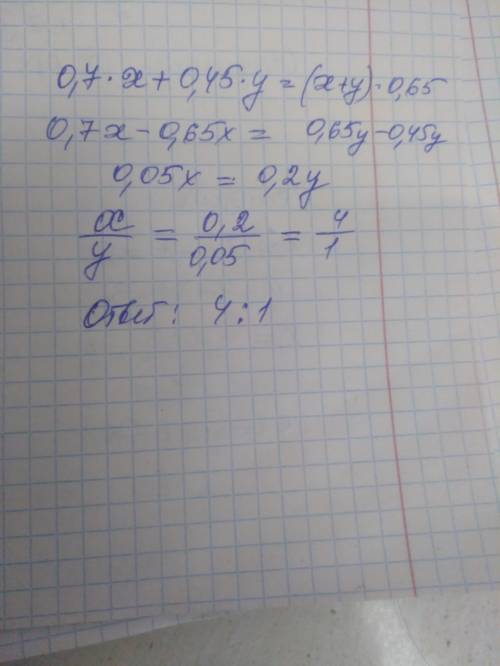 0,7·x + 0,45·y = (x+y)·0,65
0,7x - 0,65x = 0,65y - 0,45y
0,05x = 0,2y
x/y = 0,2/0,05 = 4/1
Ответ: 4:1